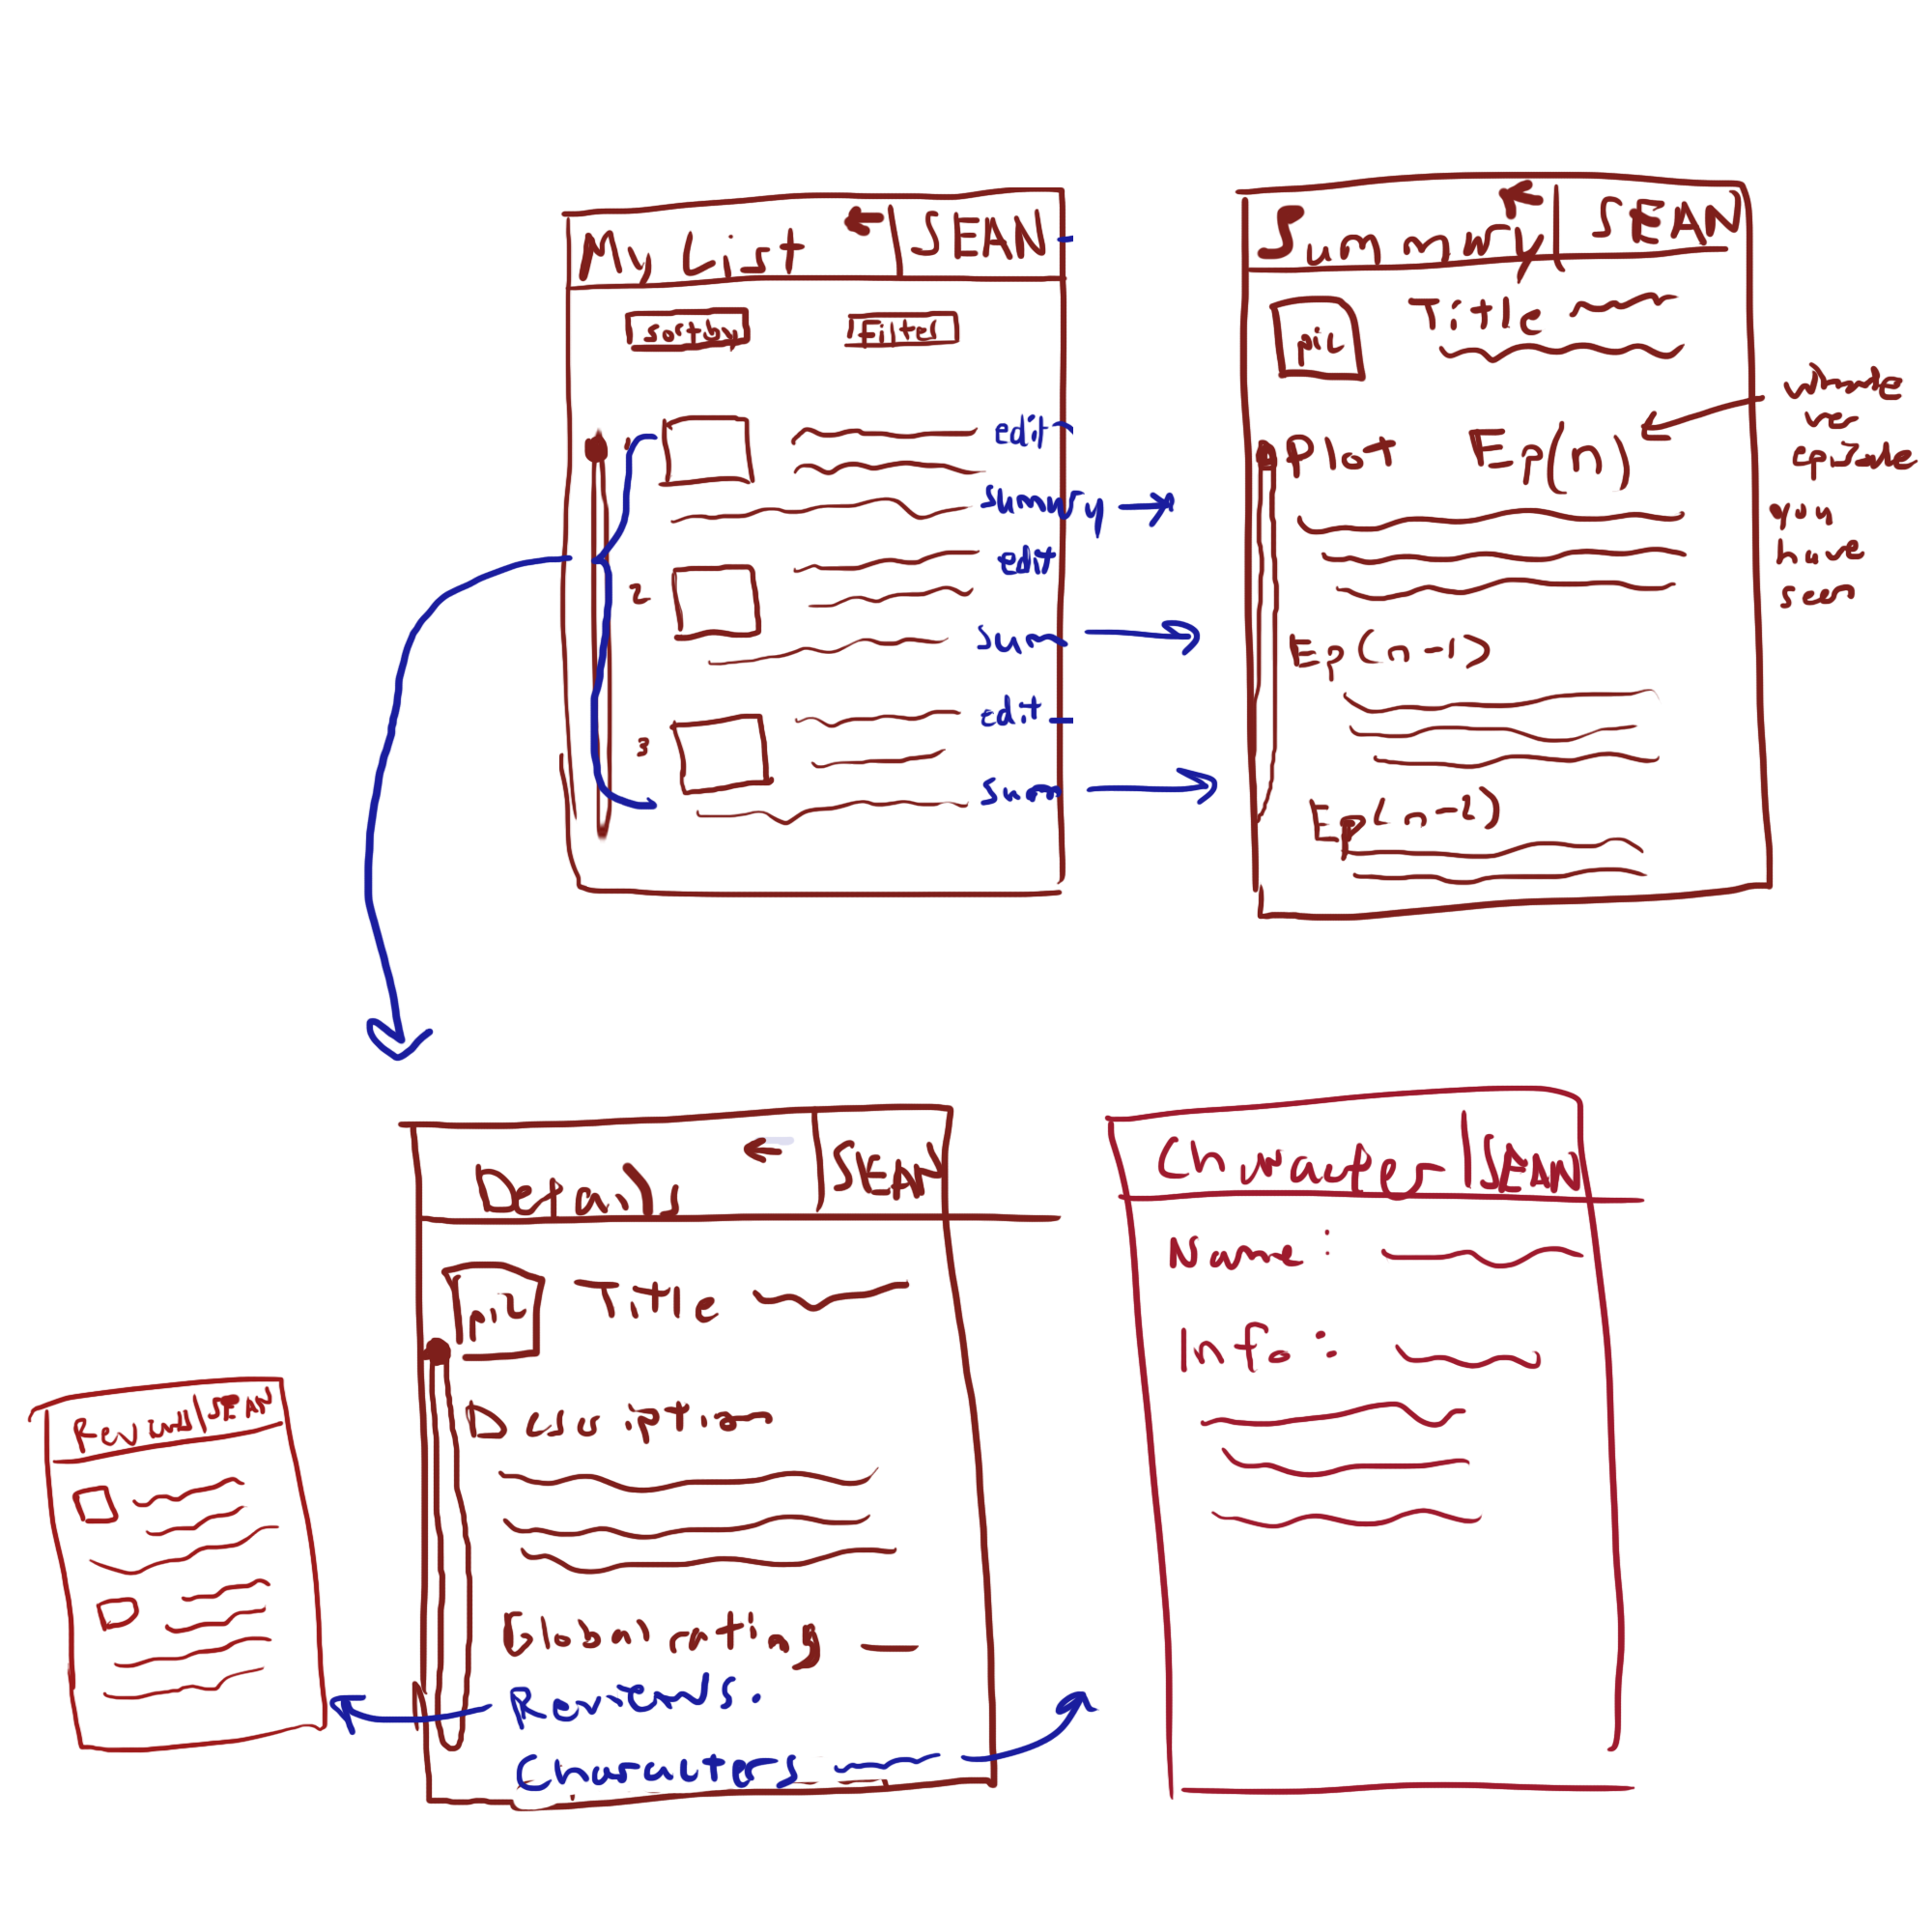 My List SEAN
Sort by Filter
1
edit
summry
2
edit
sum
3
edit
sum
Summary SEAN
pic
Title
Plot Ep(n)
Ep(n-1)
Ep(n-2)
episode
you
have
seen
Details SEAN
pic
Title
Description
Global rating
Reviews.
Characters
Reviews SEAN
Character SEAN
Name:
Info: